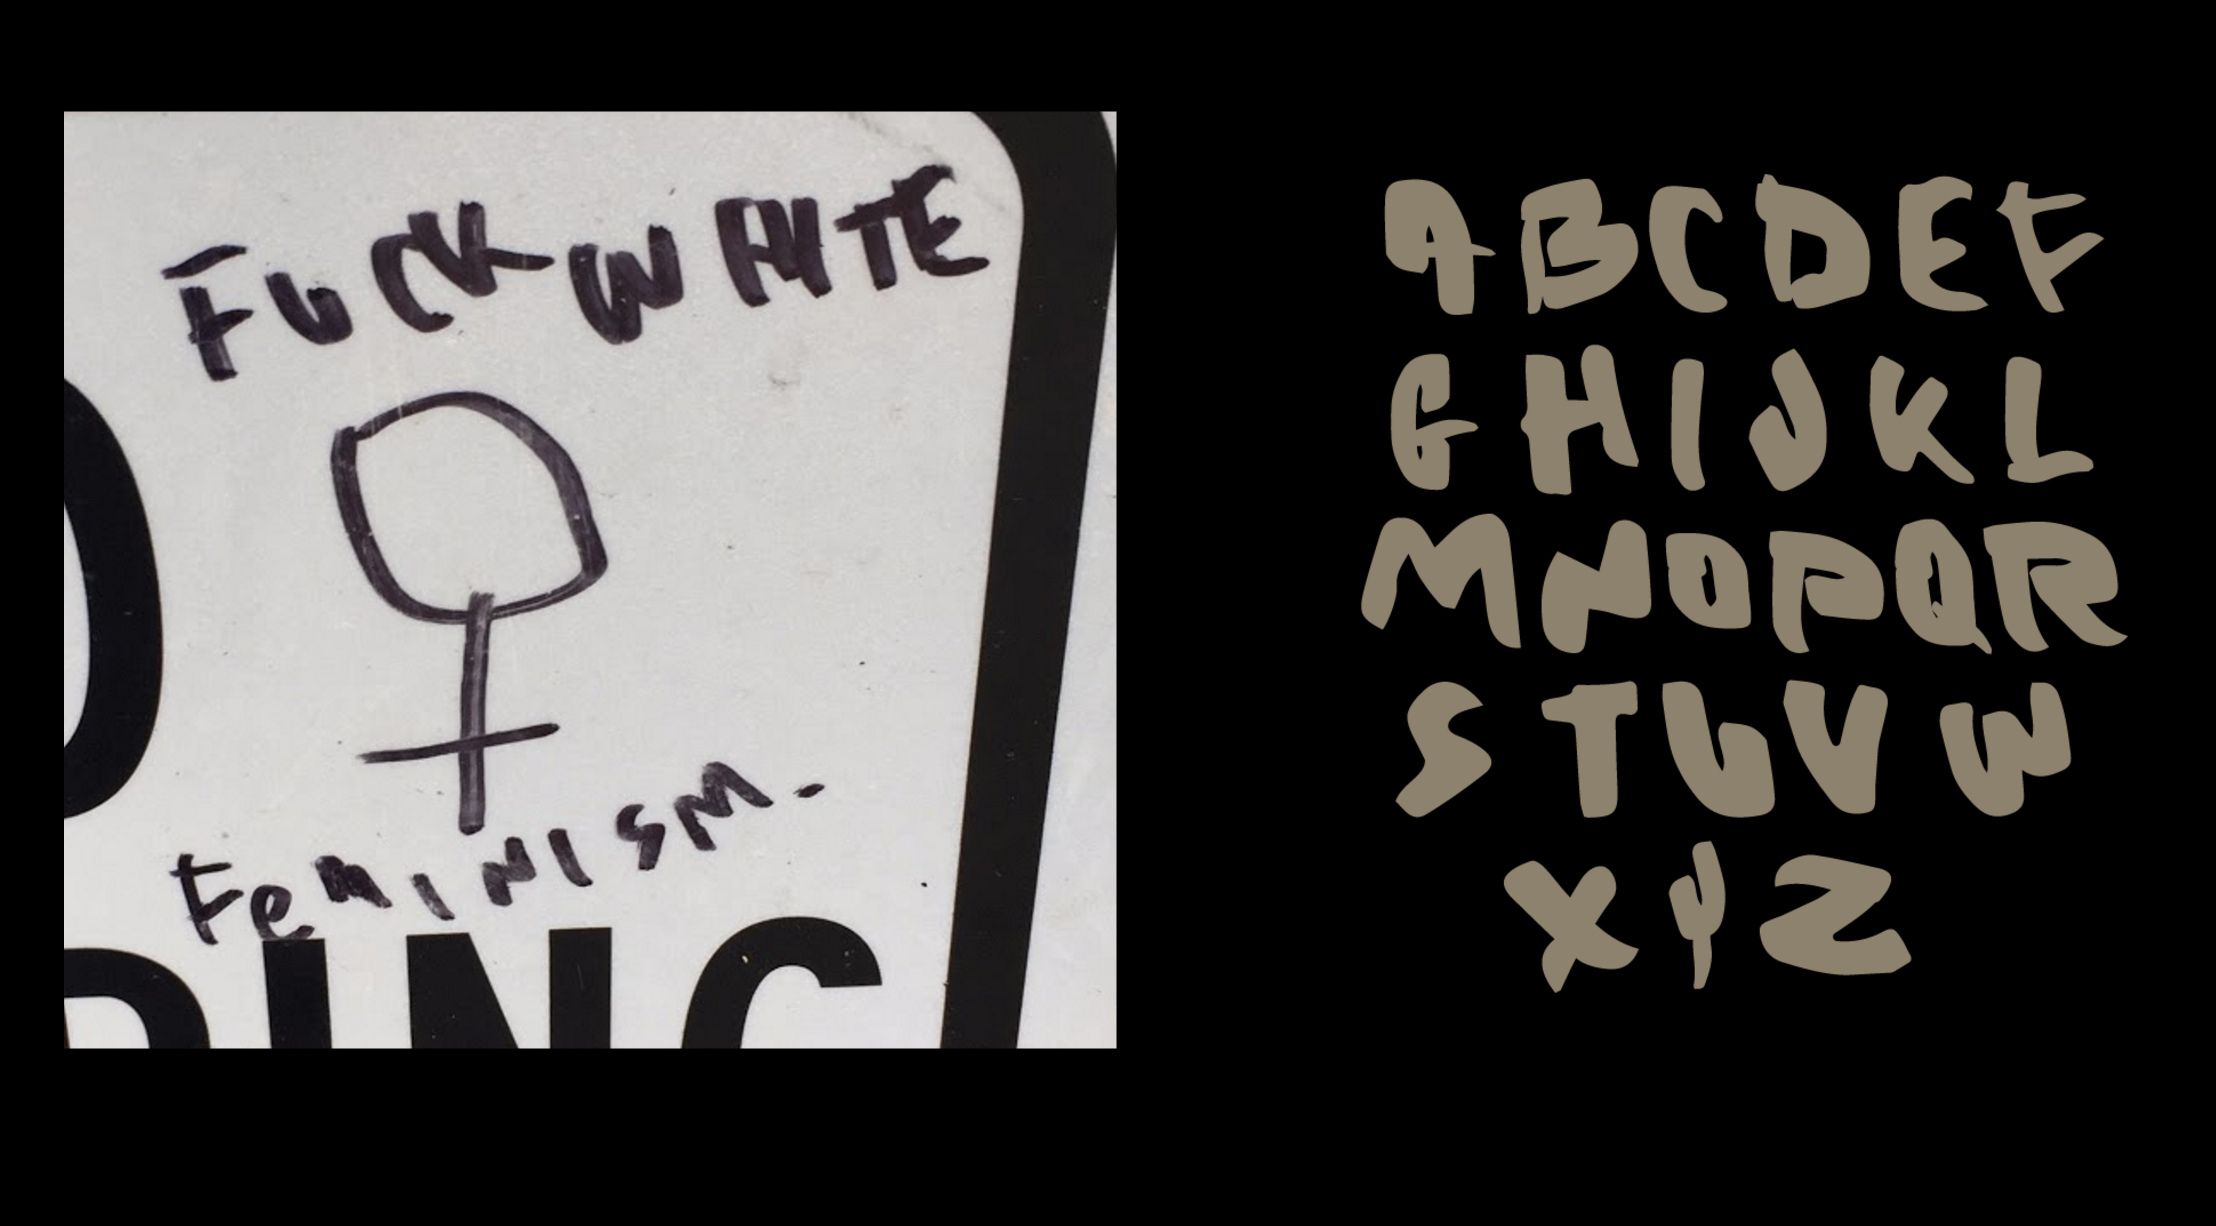 FUCK WHITE
FeMINISM.
ABCDEF
GHIJKL
MNOPQR
STUVW
XYZ